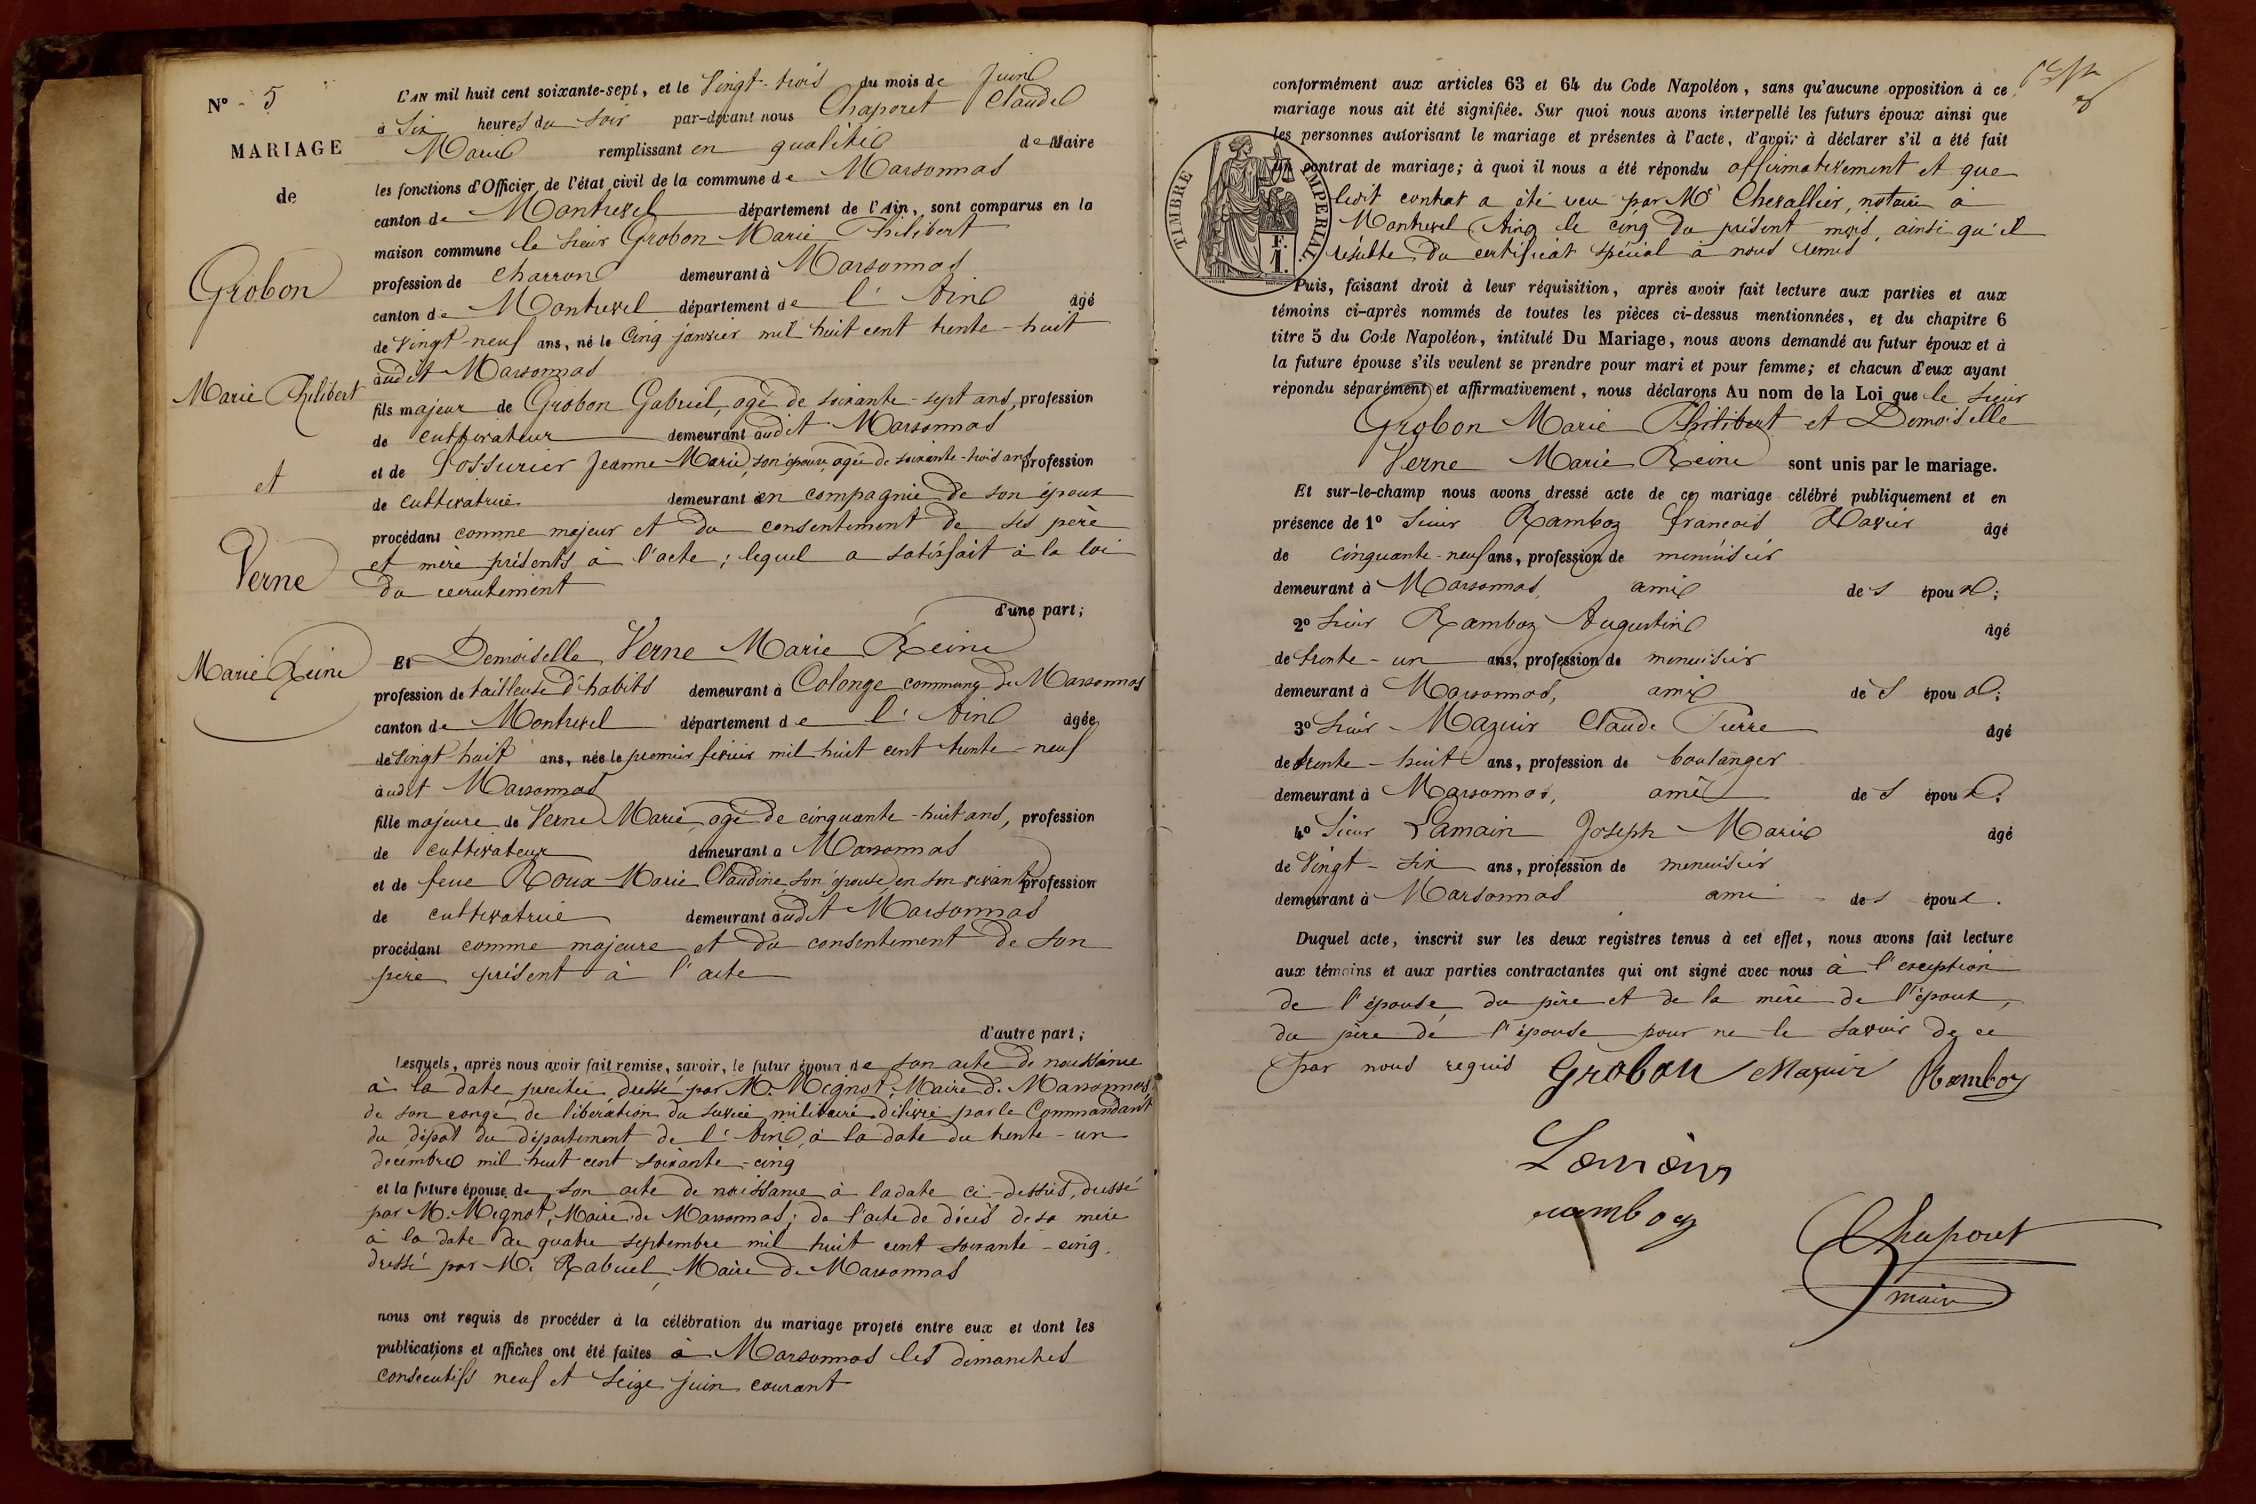 N° 5
MARIAGE
de
Grobon
Marie Philibert
et
Verne
Marie Reine
L'AN mil huit cent soixante-sept, et le Vingt-trois du mois de Juin
à Six heures du soir par-devant nous Chaporet Claude
Marie remplissant en qualité de Maire
les fonctions d'Officier de l'état civil de la commune de Marsonnas
canton de Montrevel département de l'Ain, sont comparus en la
maison commune le sieur Grobon Marie Philibert
profession de charron demeurant à Marsonnas
canton de Montrevel département de l'Ain âgé
de Vingt-neuf ans, né le Cinq janvier mil huit cent trente-huit
audit Marsonnas
fils majeur de Grobon Gabriel, agé de soixante-sept ans, profession
de cultivateur demeurant audit Marsonnas
et de Jossurier Jeanne Marie, son épouse, agée de soixante-trois ans profession
de cultivatrice demeurant en compagnie de son époux
procédant comme majeur et du consentement de ses père
et mère présents à l'acte ; lequel a satisfait à la loi
du recrutement
d'une part ;
Et Demoiselle Verne Marie Reine
profession de tailleuse d'habits demeurant à Colonge commune de Marsonnas
canton de Montrevel département de l'Ain âgée
de Vingt huit ans, née le premier fevrier mil huit cent trente-neuf
audit Marsonnas
fille majeure de Verne Marie, agé de cinquante-huit ans, profession
de cultivateur demeurant a Marsonnas
et de feue Roux Marie Claudine, son épouse en son vivant profession
de cultivatrice demeurant audit Marsonnas
procédant comme majeure et du consentement de son
père présent à l'acte
d'autre part ;
Lesquels, après nous avoir fait remise, savoir, le futur époux de son acte de naissance
à la date precitée, dressé par M. Mignot, Maire de Marsonnas,
de son congé de libération du service militaire délivré par le Commandant
du dépot du département de l'Ain, à la date du trente-un
decembre mil huit cent soixante-cinq
et la future épouse de son acte de naissance à la date ci-dessus, dressé
par M. Mignot, Maire de Marsonnas ; de l'acte de décès de sa mère
à la date du quatre septembre mil huit cent soixante-cinq,
dressé par M. Rabuel, Maire de Marsonnas
nous ont requis de procéder à la célébration du mariage projeté entre eux et dont les
publications et affiches ont été faites à Marsonnas les dimanches
consecutifs neuf et seize juin courant
conformément aux articles 63 et 64 du Code Napoléon, sans qu'aucune opposition à ce
mariage nous ait été signifiée. Sur quoi nous avons interpellé les futurs époux ainsi que
les personnes autorisant le mariage et présentes à l'acte, d'avoir à déclarer s'il a été fait
un contrat de mariage ; à quoi il nous a été répondu affirmativement et que
ledit contrat a été reçu par Me Chevallier, notaire à
Montrevel (Ain) le cinq du présent mois, ainsi qu'il
résulte du certificat spécial à nous remis
TIMBRE IMPERIAL
F.
1.
Puis, faisant droit à leur réquisition, après avoir fait lecture aux parties et aux
témoins ci-après nommés de toutes les pièces ci-dessus mentionnées, et du chapitre 6
titre 5 du Code Napoléon, intitulé Du Mariage, nous avons demandé au futur époux et à
la future épouse s'ils veulent se prendre pour mari et pour femme ; et chacun d'eux ayant
répondu séparément et affirmativement, nous déclarons Au nom de la Loi que le sieur
Grobon Marie Philibert et Demoiselle
Verne Marie Reine sont unis par le mariage.
Et sur-le-champ nous avons dressé acte de ce mariage célébré publiquement et en
présence de 1° Sieur Ramboz francois Xavier âgé
de cinquante-neuf ans, profession de menuisier
demeurant à Marsonnas, ami des époux ;
2° Sieur Ramboz Augustin âgé
de trente-un ans, profession de menuisier
demeurant à Marsonnas, ami des époux ;
3° Sieur Mazuir Claude Pierre âgé
de trente-huit ans, profession de boulanger
demeurant à Marsonnas, ami des époux ;
4° Sieur Lamain Joseph Marie âgé
de Vingt-six ans, profession de menuisier
demeurant à Marsonnas ami des époux.
Duquel acte, inscrit sur les deux registres tenus à cet effet, nous avons fait lecture
aux témoins et aux parties contractantes qui ont signé avec nous à l'exception
de l'épouse, du père et de la mère de l'époux,
du père de l'épouse pour ne le savoir de ce
par nous requis Grobon Mazuir Ramboz
Lamain
ramboz
Chaporet
maire